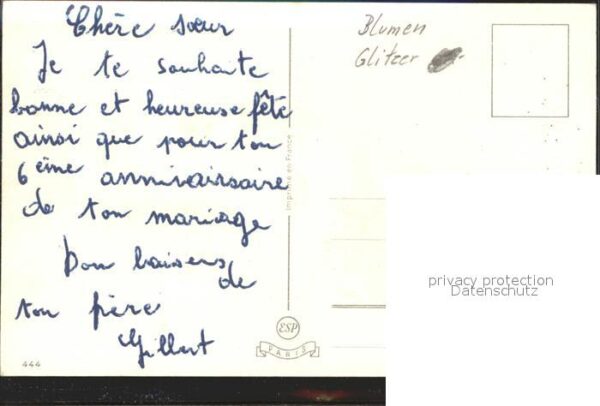 Chère sœur
Je te souhaite
bonne et heureuse fête
ainsi que pour ton
6ème anniversaire
de ton mariage
Bon baisers de
ton père
Gilbert
444
Imprimé en France
ESP
PARIS
Blumen
Glitzer
privacy protection
Datenschutz